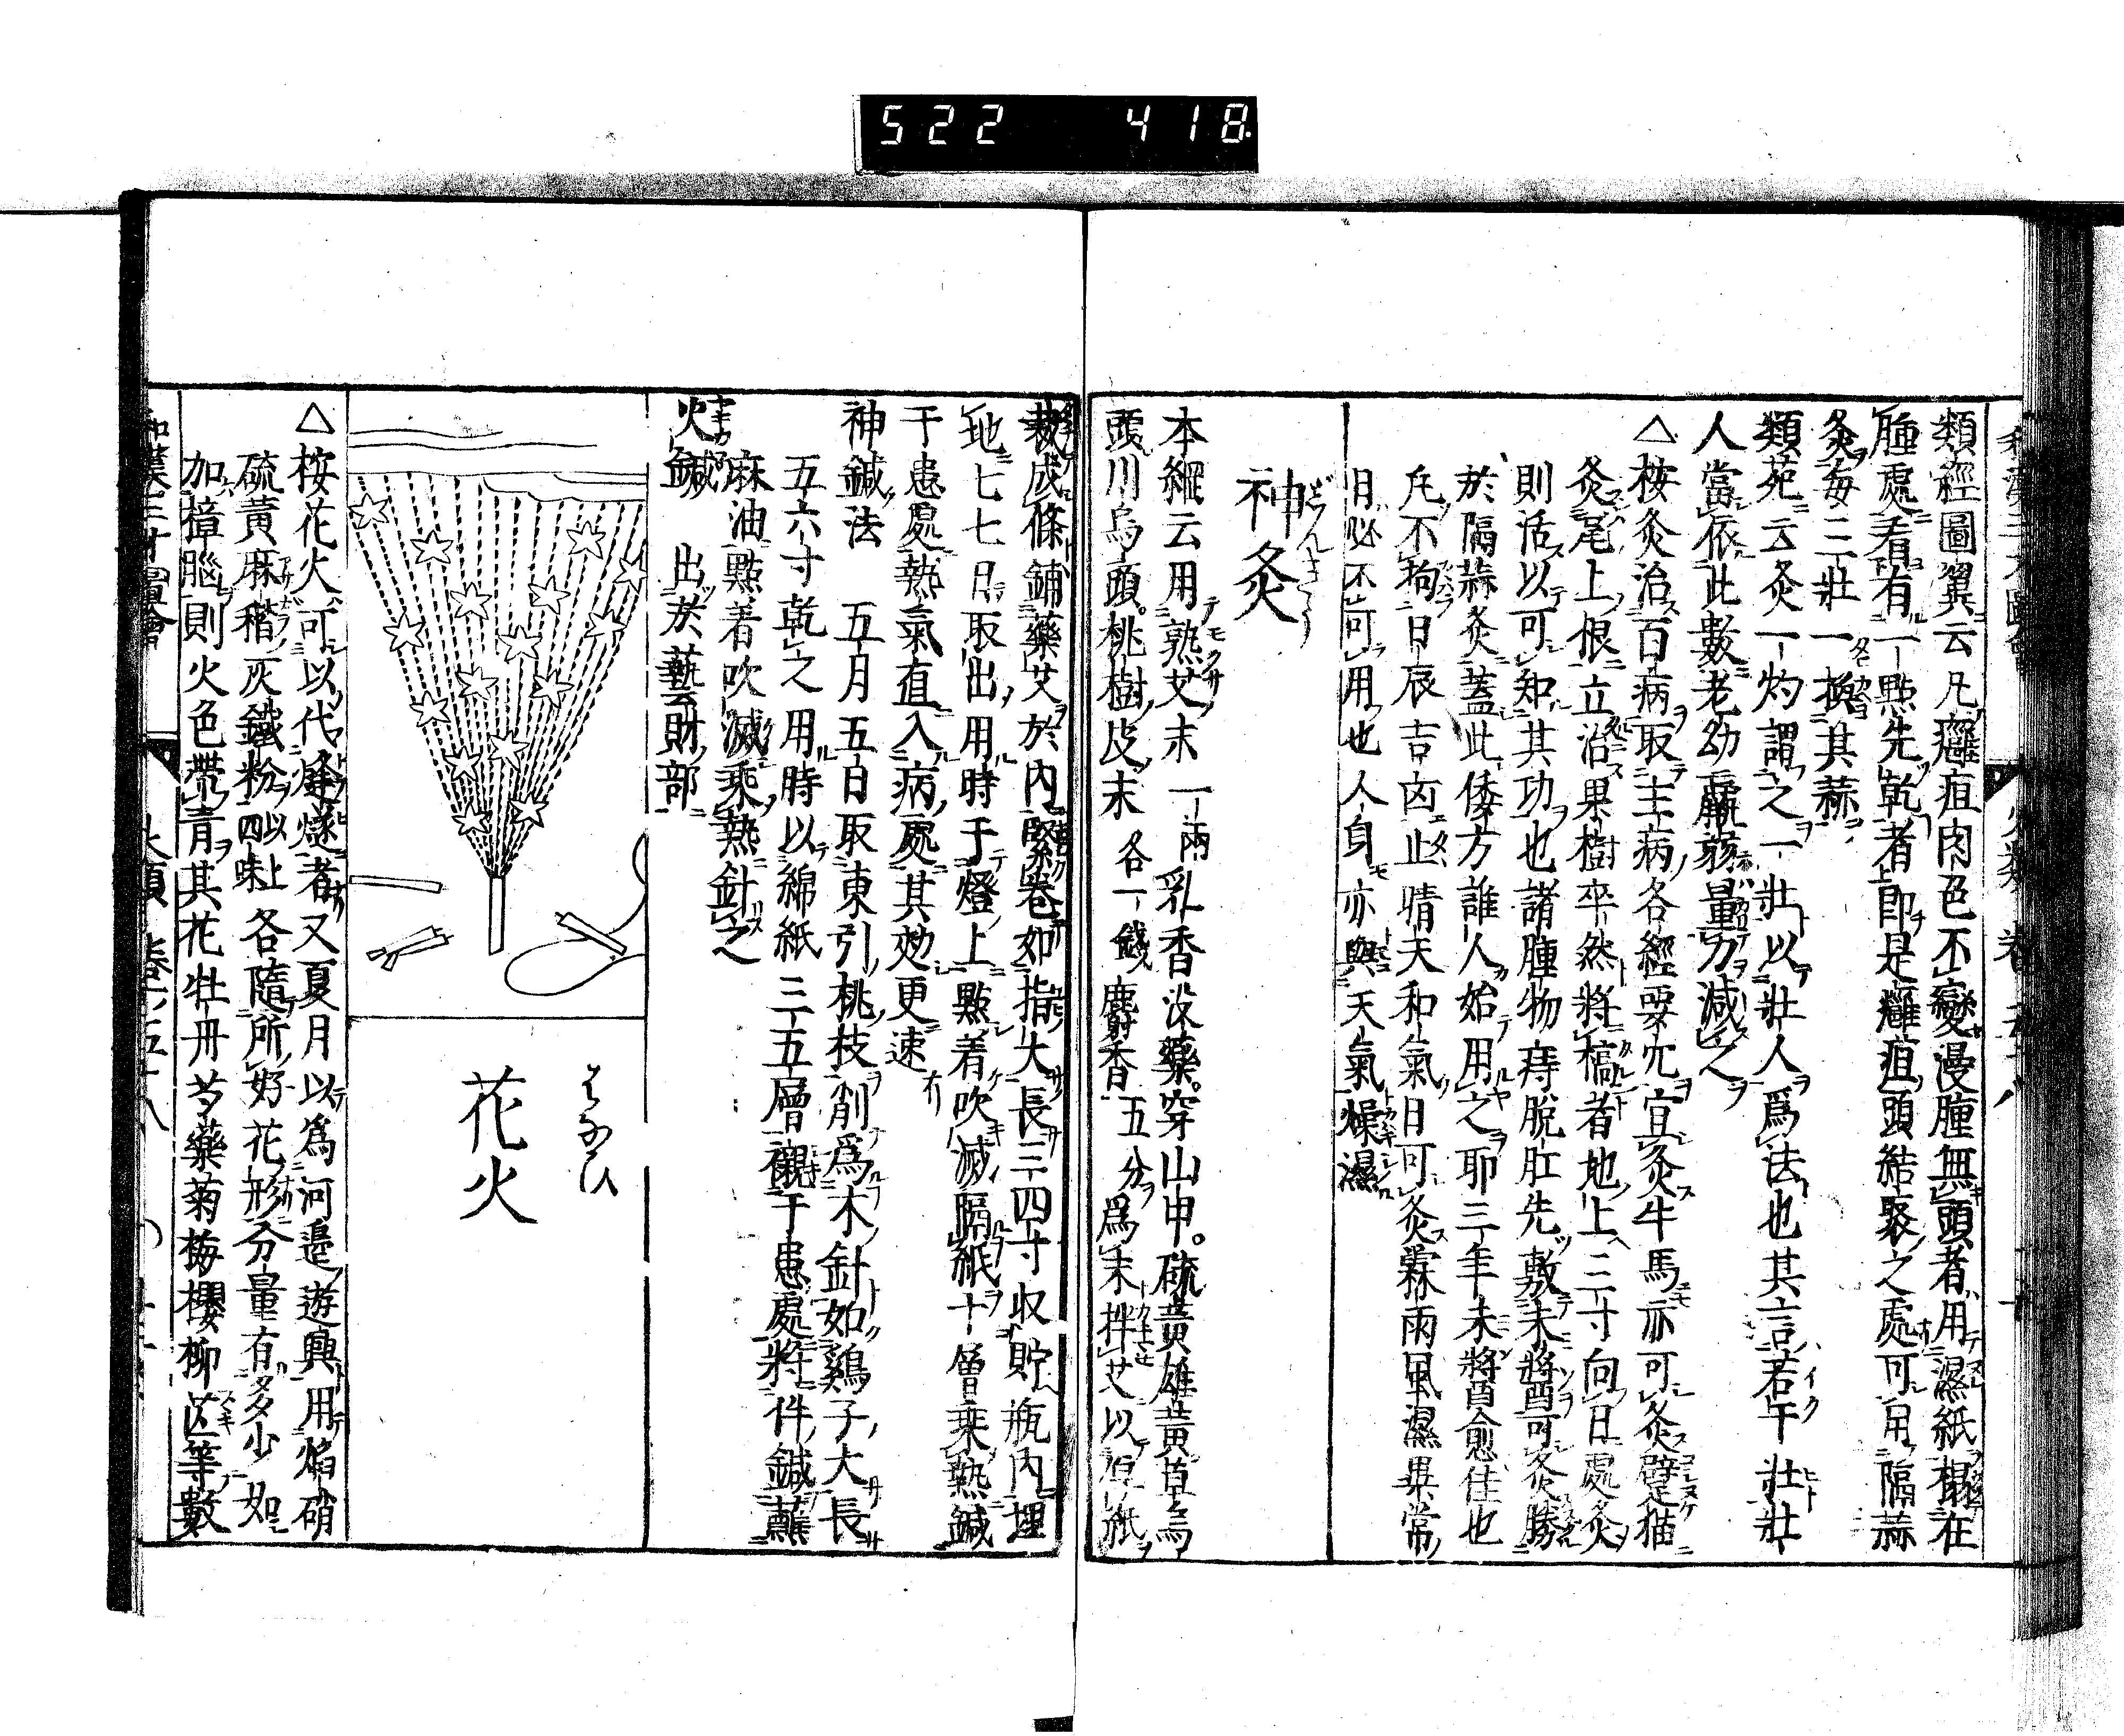 522 418
類經圖翼云凡癰疽肉色不變漫腫無頭者用濕紙榻在
腫處看有一點先乾者即是癰疽頭結聚之處可用隔蒜
灸每三壯一換其蒜
類苑云灸一灼謂之一壯以壯人爲法也其言若干壯壯
人當依此數老幼羸弱量力減之
△桉灸治百病取主病各經要穴宜灸牛馬亦可灸躄猫
灸尾上根立治果樹卒然將槁者地上三寸向日處灸
則活以可知其功也諸腫物痔脫肛先敷未醬可灸勝
於隔蒜灸蓋此倭方誰人始用之耶三年未醬愈佳也
凡不拘日辰吉凶止晴天和氣日可灸霖雨風濕異常
日必不可用也人身亦與天氣燥濕
神灸
本綱云用熟艾末一兩乳香没藥穿山甲。硫黄雄黄草烏
頭川烏頭。桃樹皮末各一錢麝香五分爲末拌艾以厚紙
裁成條鋪藥艾於內緊卷如指大長三四寸収貯瓶内埋
地七七日取出用時于燈上點着吹滅隔紙十層乘熱鍼
于患處熱氣直入病處其効更速
神鍼法 五月五日取東引桃枝削爲木針如鷄子大長
五六寸乾之用時以綿紙三五層襯于患處將件鍼蘸
麻油點着吹滅乘熱針之
火鍼 出於藝財部
花火
はなひ
△桉花火可以代烽燧者又夏月以爲河邊遊興用焰硝
硫黄麻稭灰鐵粉以上四味各隨所好花形分量有多少如
加樟腦則火色帶青其花牡丹芍藥菊梅櫻柳𦬇等數